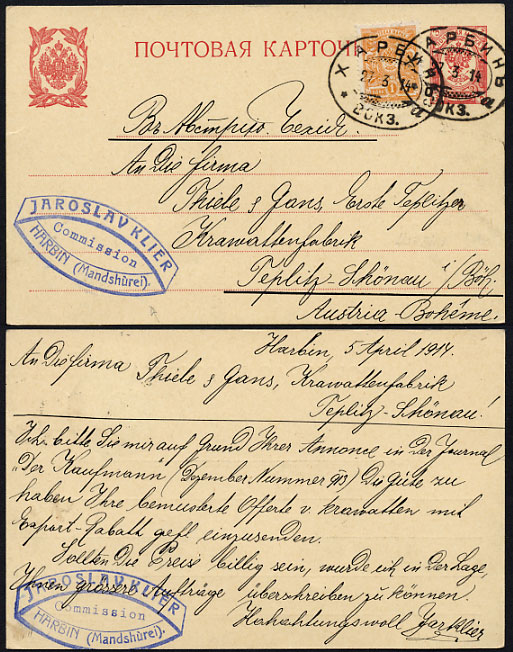 ПОЧТОВАЯ КАРТОЧКА
ХАРБИНЪ
ХАРБИНЪ
3 14
3. 14
a
a
* 2СКЗ.
2СКЗ.
Въ Австрiю. Чехiя.
An Die Firma
Thiele & Gans, Erste Teplitzer
Krawattenfabrik
Teplitz-Schönau i/Böh.
Austria-Bohême.
JAROSLAV KLIER
Commission
HARBIN (Mandshúrei).
Harbin, 5 April 1914.
An Die Firma Thiele & Gans, Krawattenfabrik
Teplitz-Schönau!
Ich bitte Sie mir auf Grund Ihrer Annonce in der Journal
"Der Kaufmann" (Dezember Nummer 913) Die Güte zu
haben Ihre bemusterte Offerte v. Krawatten mit
Export-Rabatt gefl einzusenden.
Sollten Die Preise billig sein, wurde ich in der Lage,
Ihnen grössere Aufträge überschreiben zu können.
Hochachtungsvoll Jarklier
JAROSLAV KLIER
Commission
HARBIN (Mandshúrei).